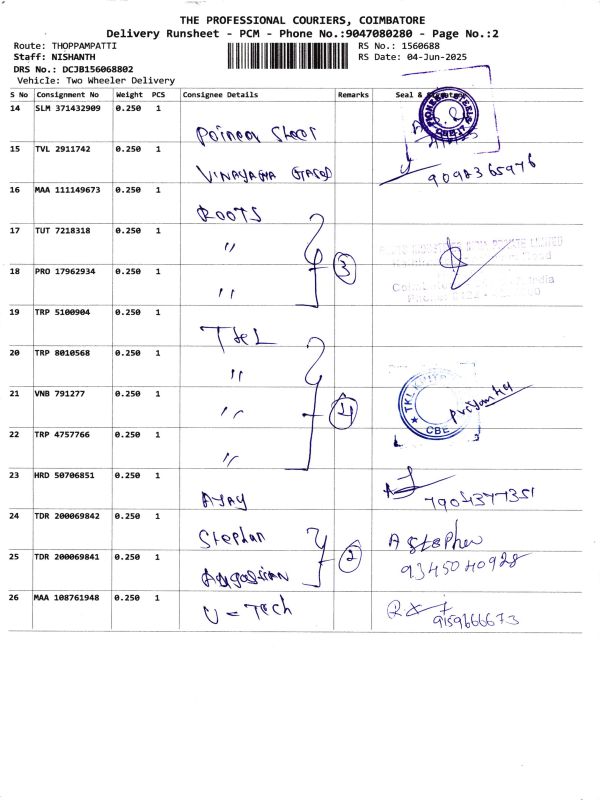 THE PROFESSIONAL COURIERS, COIMBATORE
Delivery Runsheet - PCM - Phone No.:9047080280 - Page No.:2
Route: THOPPAMPATTI RS No.: 1560688
Staff: NISHANTH RS Date: 04-Jun-2025
DRS No.: DCJB156068802
Vehicle: Two Wheeler Delivery
S No Consignment No Weight PCS Consignee Details Remarks Seal &
14 SLM 371432909 0.250 1
PIONEER STEELS
Poineer Steel
15 TVL 2911742 0.250 1
VINAYAGHA 9098365976
16 MAA 111149673 0.250 1
ROOTS
17 TUT 7218318 0.250 1
〃
18 PRO 17962934 0.250 1 3
〃
19 TRP 5100904 0.250 1
20 TRP 8010568 0.250 1
〃
21 VNB 791277 0.250 1 4
〃 TKL CBE Priyanka
22 TRP 4757766 0.250 1
〃
23 HRD 50706851 0.250 1
AJAY 7904377351
24 TDR 200069842 0.250 1
Stephan A Stephen
25 TDR 200069841 0.250 1 2
9345040928
26 MAA 108761948 0.250 1
U-Tech 9159666673